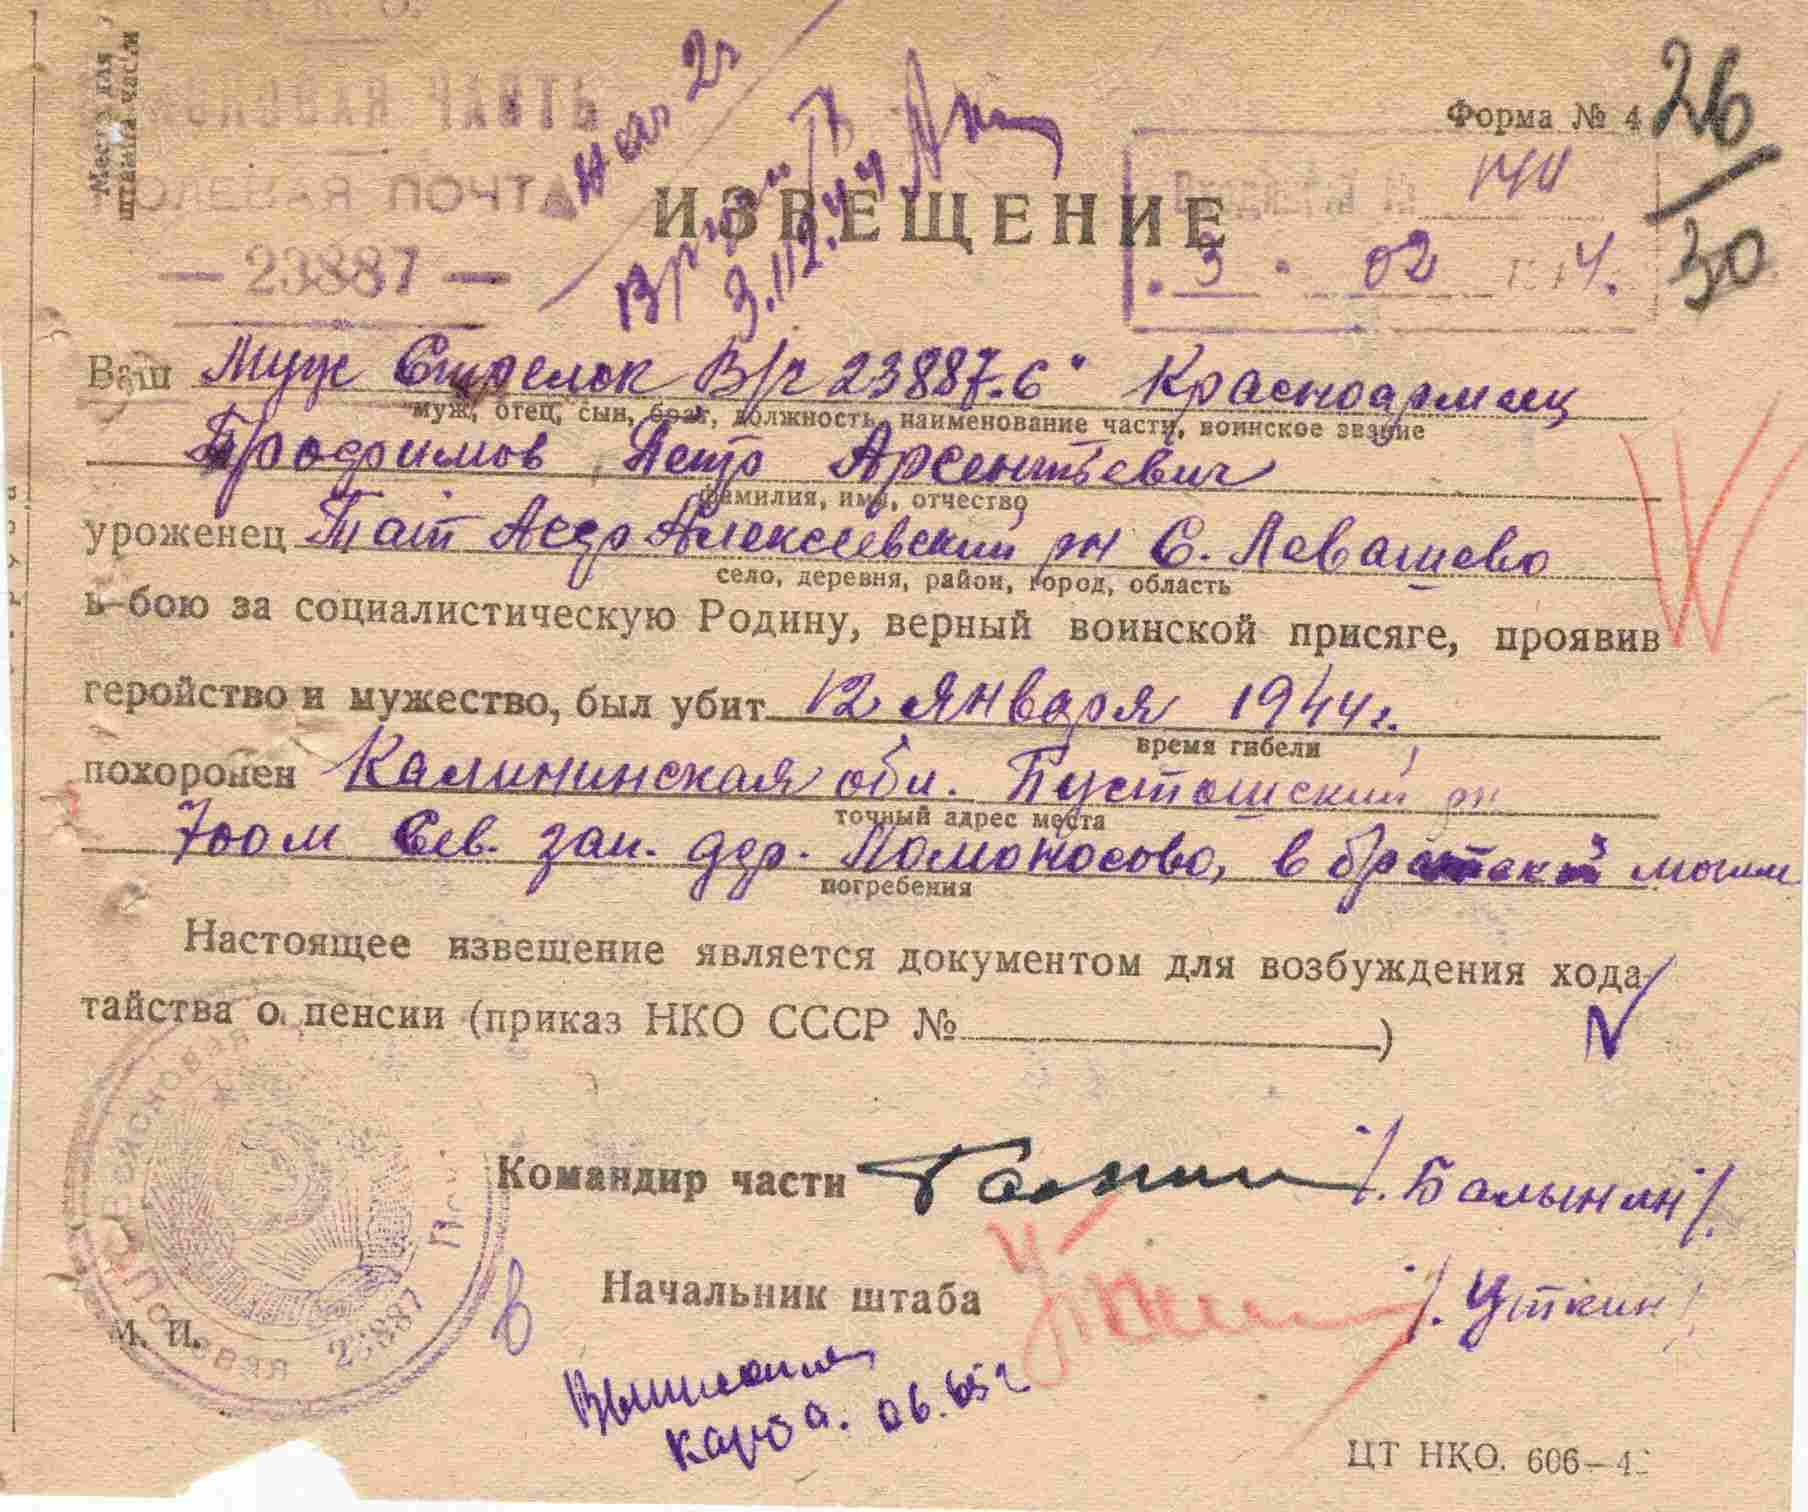 Место для
штампа части
Н. К. О.
ВОЙСКОВАЯ ЧАСТЬ
ПОЛЕВАЯ ПОЧТА
— 23887 —
Форма № 4
26/30
ИЗВЕЩЕНИЕ
3 02 4
Ваш Муж Стрелок В/ч 23887.б" Красноармеец
муж, отец, сын, брат, должность, наименование части, воинское звание
Трофимов Петр Арсентьевич
фамилия, имя, отчество
уроженец Тат Асср Алексеевский рн С. Левашево
село, деревня, район, город, область
в бою за социалистическую Родину, верный воинской присяге, проявив
геройство и мужество, был убит 12 января 1944г.
время гибели
похоронен Калининская обл. Пустошский рн
точный адрес места
700 м Сев. зап. дер. Ломоносово, в братской могиле
погребения
Настоящее извещение является документом для возбуждения хода-
тайства о пенсии (приказ НКО СССР № )
Командир части /. Балынин/.
Начальник штаба Уткин /. Уткин/
23887
М. П.
Выписана
карта. 06.65г
ЦТ НКО. 606—4